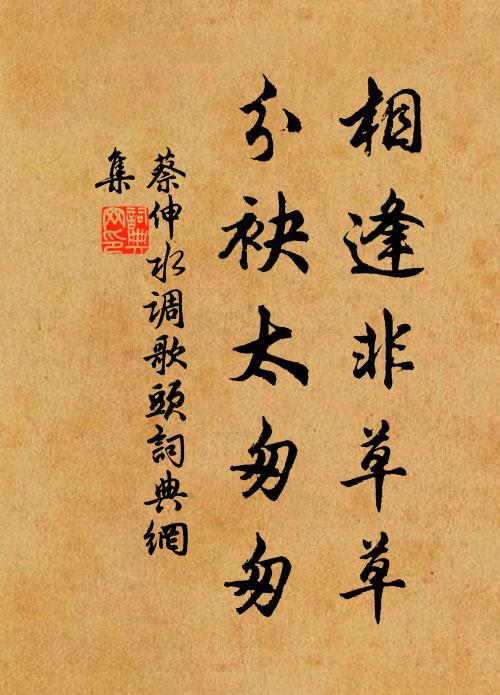 相逢非草草
分袂太匆匆
蔡伸水调歌頭詞典網
集
詞典
网印